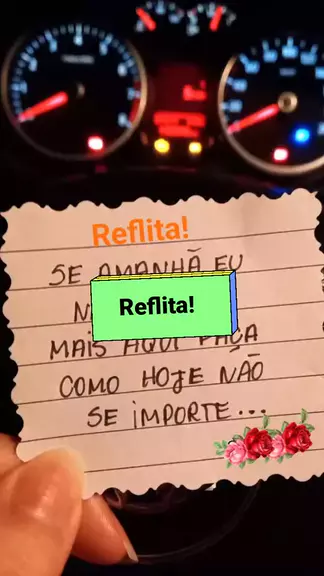 Reflita!
SE AMANHÃ EU
Reflita!
MAIS AQUI FAÇA
COMO HOJE NÃO
SE IMPORTE...